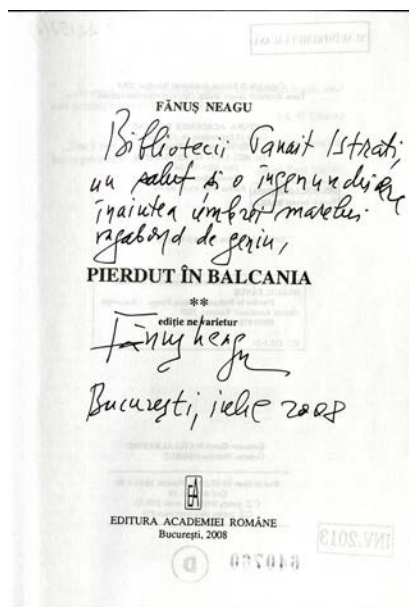 FĂNUȘ NEAGU
Bibliotecii Panait Istrati,
un salut și o îngenunchiere
înaintea umbrei marelui
vagabond de geniu,
PIERDUT ÎN BALCANIA
**
ediție ne varietur
Fănuș Neagu
București, iulie 2008
EA
EDITURA ACADEMIEI ROMÂNE
București, 2008
INV.2013
D
640760